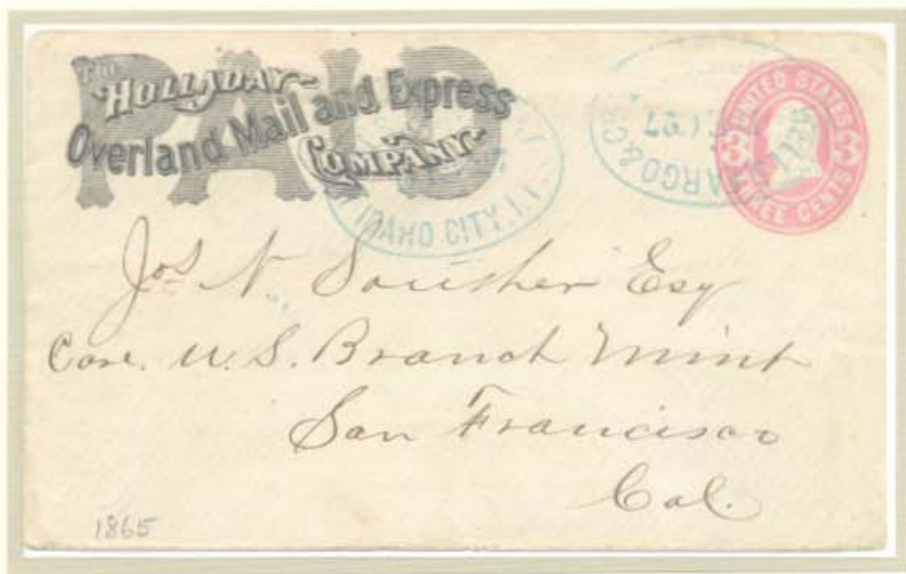 PAID
The
HOLLADAY
Overland Mail and Express
COMPANY
IDAHO CITY, I.T.
FARGO & CO
UNITED STATES
3 3
THREE CENTS
Jos N. Souther Esq
Care. U.S. Branch Mint
San Francisco
Cal.
1865